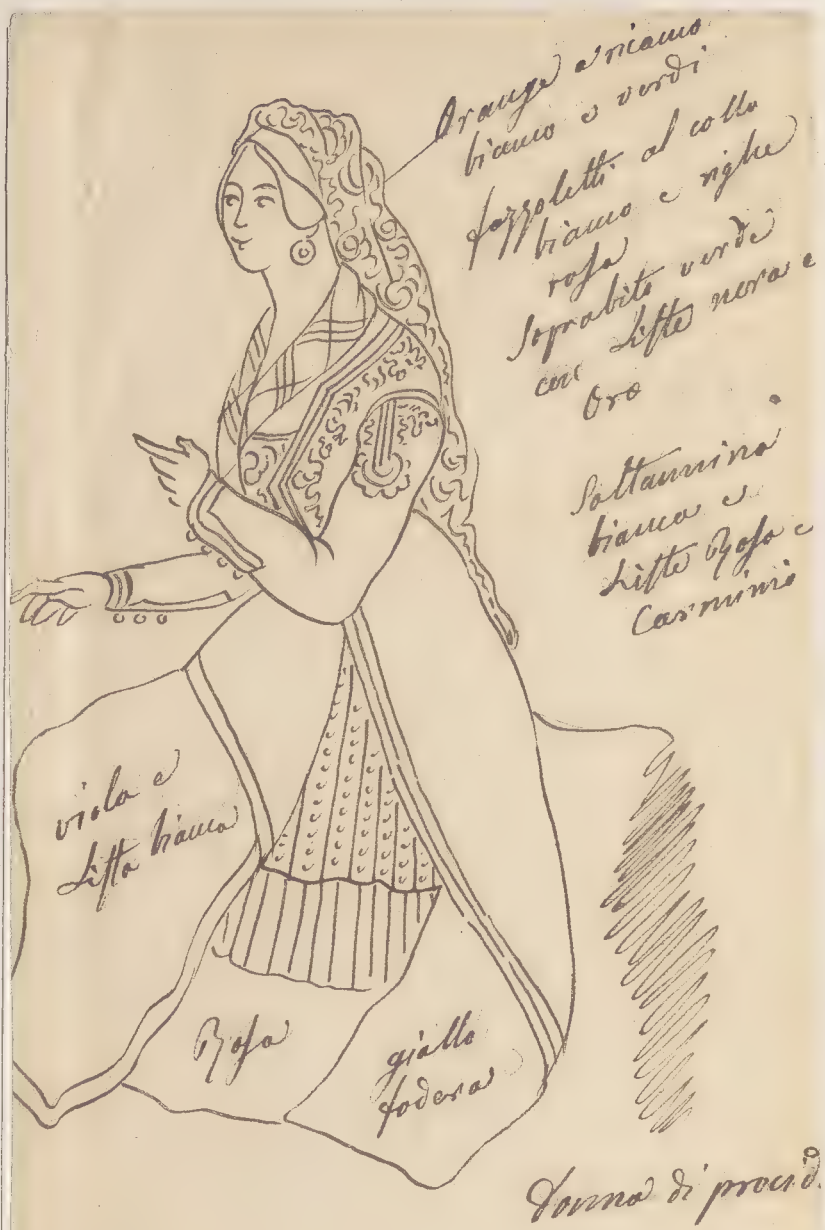 Orange e ricamo
bianco e verdi
fazzoletti al collo
bianco e righe
rosa
soprabito verde
con liste nera e
Oro
Sottannina
bianca e
liste Rosa e
Carminio
viola e
lista bianca
Rosa
giallo
fodera
Donna di